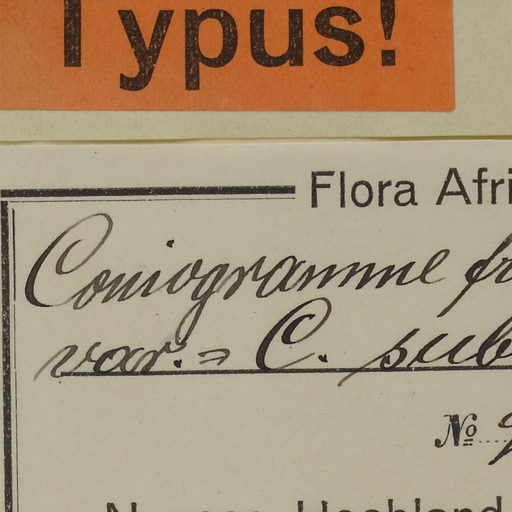 Typus!
Flora Afri
Coniogramme fr
var. = C. sub
№
Hochland